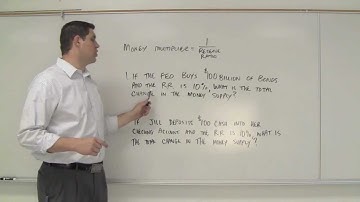 MONEY MULTIPLIER = 1 / RESERVE RATIO
1. IF THE FED BUYS $100 BILLION OF BONDS
AND THE RR IS 10%, WHAT IS THE TOTAL
CHANGE IN THE MONEY SUPPLY?
IF JILL DEPOSITS $100 CASH INTO HER
CHECKING ACCOUNT AND THE RR IS 10% WHAT IS
THE TOTAL CHANGE IN THE MONEY SUPPLY?